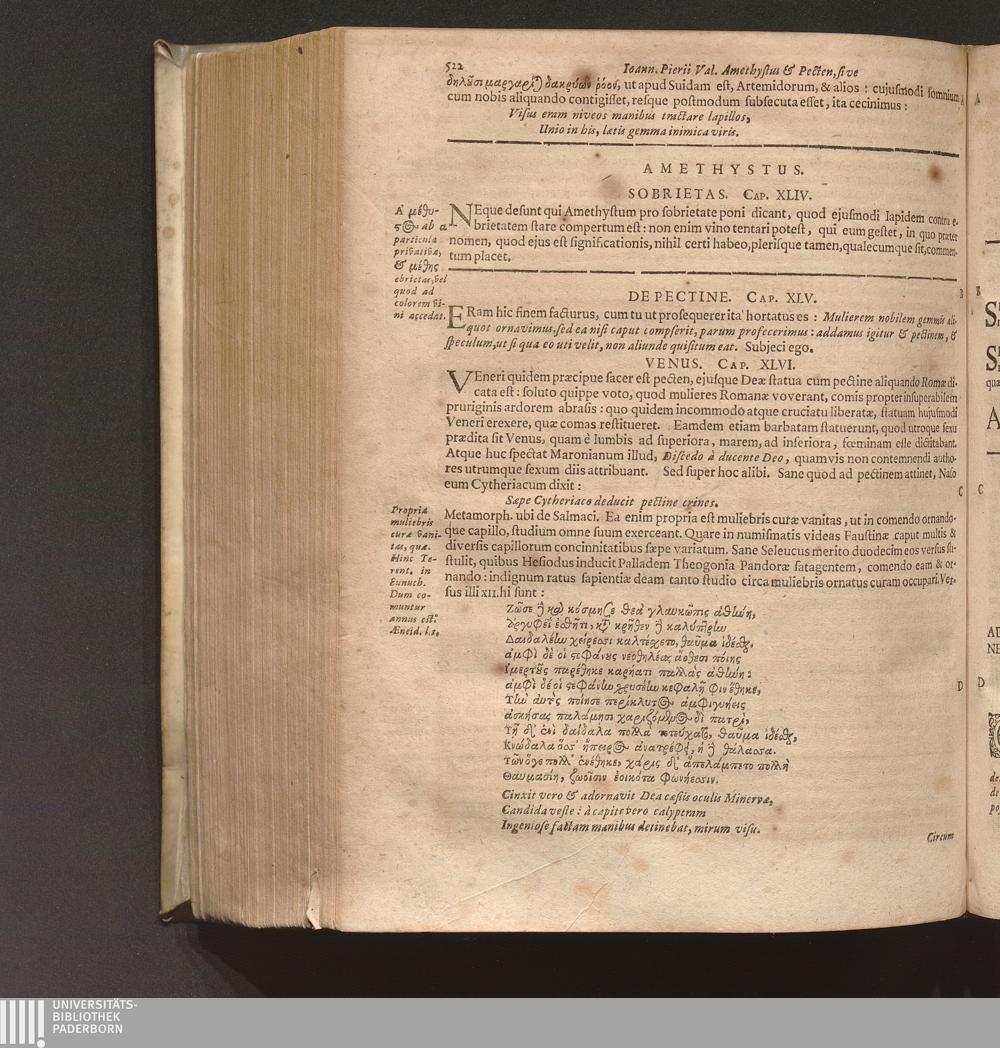 522
Ioann. Pierii Val. Amethystus & Pecten, sive
δηλοῦσι μαργαρῖται δακρύων ῥόον, ut apud Suidam est, Artemidorum, & alios : cujusmodi somnium
cum nobis aliquando contigisset, resque postmodum subsecuta esset, ita cecinimus :
Visus eram niveos manibus tractare lapillos,
Unio in his, lætis gemma inimica viris.
AMETHYSTUS.
SOBRIETAS. CAP. XLIV.
NEque desunt qui Amethystum pro sobrietate poni dicant, quod ejusmodi lapidem contra e-
brietatem stare compertum est : non enim vino tentari potest, qui eum gestet, in quo præter
nomen, quod ejus est significationis, nihil certi habeo, plerisque tamen, qualecumque sit, commen-
tum placet.
A' μέθυ-
στος ab α
particula
privativa,
& μέθης
ebrietas, vel
quod ad
colorem vi-
ni accedat.
DE PECTINE. CAP. XLV.
ERam hic finem facturus, cum tu ut prosequerer ita hortatus es : Mulierem nobilem gemmis ali-
quot ornavimus, sed ea nisi caput compserit, parum profecerimus : addamus igitur & pectinem, &
speculum, ut si qua eo uti velit, non aliunde quisitum eat. Subjeci ego.
VENUS. CAP. XLVI.
VEneri quidem præcipue sacer est pecten, ejusque Deæ statua cum pectine aliquando Romæ di-
cata est : soluto quippe voto, quod mulieres Romanæ voverant, comis propter insuperabilem
pruriginis ardorem abrasis : quo quidem incommodo atque cruciatu liberatæ, statuam hujusmodi
Veneri erexere, quæ comas restitueret. Eamdem etiam barbatam statuerunt, quod utroque sexu
prædita sit Venus, quam è lumbis ad superiora, marem, ad inferiora, fœminam esse dictitabant.
Atque huc spectat Maronianum illud, Discedo à ducente Deo, quamvis non contemnendi autho-
res utrumque sexum diis attribuant. Sed super hoc alibi. Sane quod ad pectinem attinet, Naso
eum Cytheriacum dixit :
Sæpe Cytheriaco deducit pectine crines.
Metamorph. ubi de Salmaci. Ea enim propria est muliebris curæ vanitas, ut in comendo ornando-
que capillo, studium omne suum exerceant. Quare in numismatis videas Faustinæ caput multis &
diversis capillorum concinnitatibus sæpe variatum. Sane Seleucus merito duodecim eos versus su-
stulit, quibus Hesiodus inducit Palladem Theogonia Pandoræ satagentem, comendo eam & or-
nando : indignum ratus sapientiæ deam tanto studio circa muliebris ornatus curam occupari. Ver-
sus illi XII. hi sunt :
Propria
muliebris
curæ vani-
tas, quæ.
Hinc Te-
rent. in
Eunuch.
Dum co-
muntur
annus est.
Æneid. l. 2,
Ζῶσε δὲ καὶ κόσμησε θεὰ γλαυκῶπις ἀθήνη,
Ἀργυφέῃ ἐσθῆτι, κατὰ κρῆθεν δὲ καλύπτρην
Δαιδαλέην χείρεσσι κατέχετο, θαῦμα ἰδέσθαι.
ἀμφὶ δέ οἱ στεφάνους νεοθηλέας ἄνθεσι ποίης
Ἱμερτοὺς παρέθηκε καρήατι παλλὰς ἀθήνη :
ἀμφὶ δέ οἱ στεφάνην χρυσέην κεφαλῆφιν ἔθηκε,
Τὴν αὐτὸς ποίησε περίκλυτος ἀμφιγυήεις
ἀσκήσας παλάμῃσι χαριζόμενος διὶ πατρὶ,
Τῇ δ' ἐνὶ δαίδαλα πολλὰ τετεύχατο, θαῦμα ἰδέσθαι,
Κνώδαλα ὅσ' ἤπειρος ἀνατρέφει, ἠ δὲ θάλασσα.
Τῶν ὅγε πολλ' ἐνέθηκε, χάρις δ' ἀπελάμπετο πολλὴ
Θαυμασίη, ζωοῖσιν ἐοικότα φωνήεσσιν.
Cinxit vero & adornavit Dea cæsiis oculis Minerva,
Candida veste : à capite vero calyptram
Ingeniose factam manibus detinebat, mirum visu.
Circum
A
B
C
D
A
B
C
D
UNIVERSITÄTS-
BIBLIOTHEK
PADERBORN